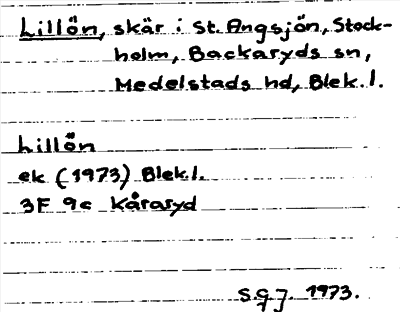 Lillön, skär i St. Angsjön, Stock-
holm, Backaryds sn,
Medelstads hd, Blek. l.
Lillön
ek (1973) Blek. l.
3F 9c Kårasyd
S.g.J. 1973.